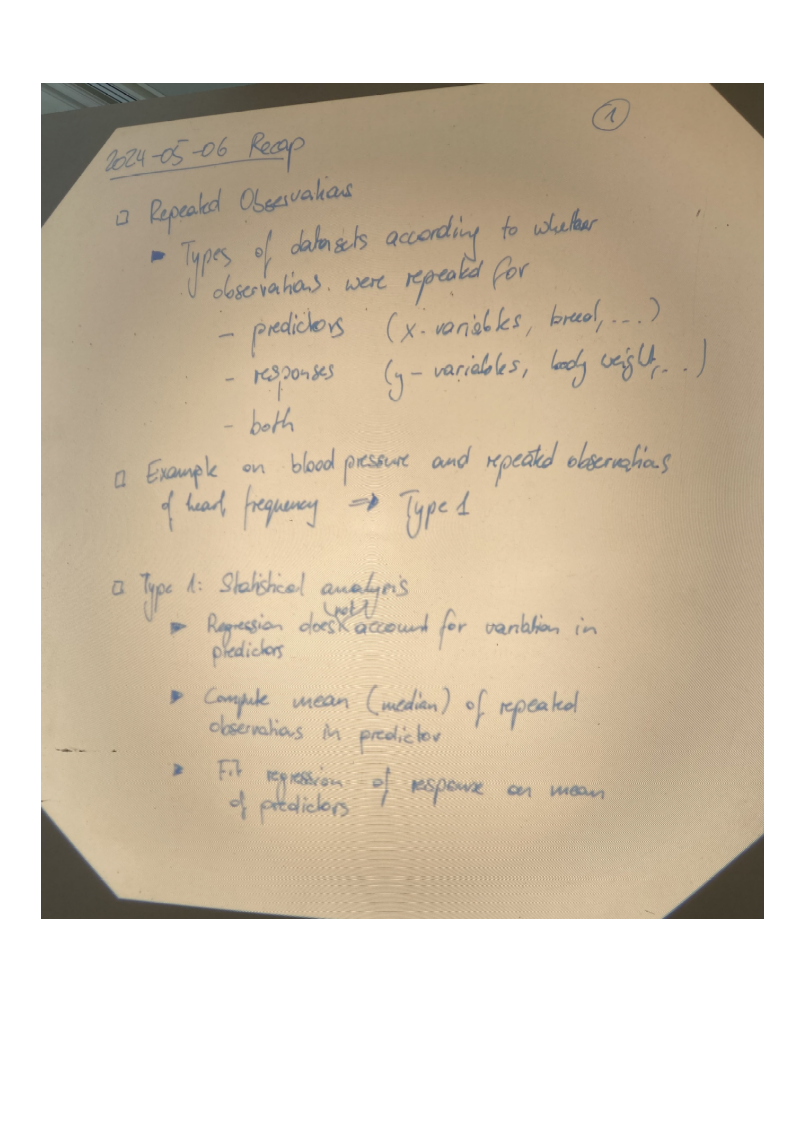 1
2024-05-06 Recap
□ Repeated Observations
► Types of datasets according to whether
observations were repeated for
– predictors (x-variables, breed, ...)
– responses (y-variables, body weight, ...)
– both
□ Example on blood pressure and repeated observations
of heart frequency ⇒ Type 1
□ Type 1: Statistical analysis
not
► Regression does account for variation in
predictors
► Compute mean (median) of repeated
observations in predictor
► Fit regression of response on mean
of predictors